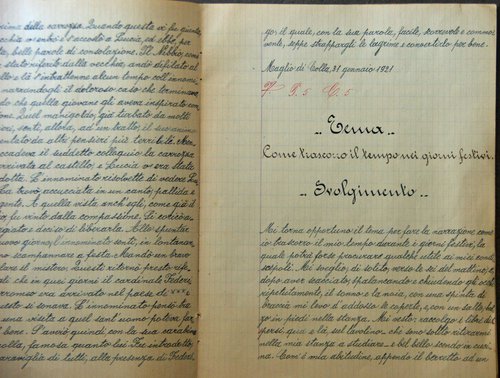 prima della carrozza. Quando questa vi fu giunta,
vecchia v'entrò e s'accostò a Lucia, ed ebbe, per
to, belle parole di consolazione. Il Nibbio, come
stato riferito dalla vecchia, andò difilato al
lo e là s'intrattenne alcun tempo coll'innomi
narrandogli il doloroso caso che terminava
do che quella giovane gli aveva inspirato com
ne. Quel manigoldo, già turbato da molti
sentì, allora, ad un tratto, il suo animo
tentato da altri pensieri più terribili. Men
accadeva il suddetto colloquio la carrozza
arrivata al castello, e Lucia v'era stata
dotta. L'innominato risolvette di vedere
La trovò, accucciata in un canto, pallida e
gente. A quella vista anch'egli, come già il
fu vinto dalla compassione. Si coricò a
giato e deciso di liberarla. Allo spuntar
nuovo giorno, l'innominato sentì, in lontanan
no scampanare a festa. Mandò un bravo
lare il mistero. Questi ritornò presto rife
di che in quei giorni il cardinale Federi
rromeo era arrivato nel paese di ***
veste si teneva. E l'innominato pensò ba
una visita a quel sant'uomo poteva far
bene. S'avviò quindi, con la sua carabina
colla, famosa quanto lui. Fu introdotto,
maraviglia di tutti, alla presenza di Federi
go, il quale, con la sua parola, facile, scorrevole e commo
vente, seppe strappargli le lagrime e convertirlo per bene.
Maglio di Colla, 31 gennaio 1921
P. 5 C. 5
.. Tema ..
Come trascorro il tempo nei giorni festivi.
.. Svolgimento ..
Mi torna opportuno il tema per fare la narrazione come
io trascorro il mio tempo durante i giorni festivi, la
quale potrà forse procurare qualche utile ai miei condi
scepoli. Mi sveglio, di solito, verso le sei del mattino; e
dopo aver scacciato, spalancando e chiudendo gli occhi
ripetutamente, il sonno e la noia, con una spinta di
braccia mi levo e addosso il capotto, e, con un salto, bal
zo in piedi nella stanza. Mi vesto; raccolgo i libri di
spersi qua e là sul tavolino che sono solito ritirarmi
nella mia stanza a studiare e bel bello scendo in cu
cina. Com'è mia abitudine, appendo il berretto ad un